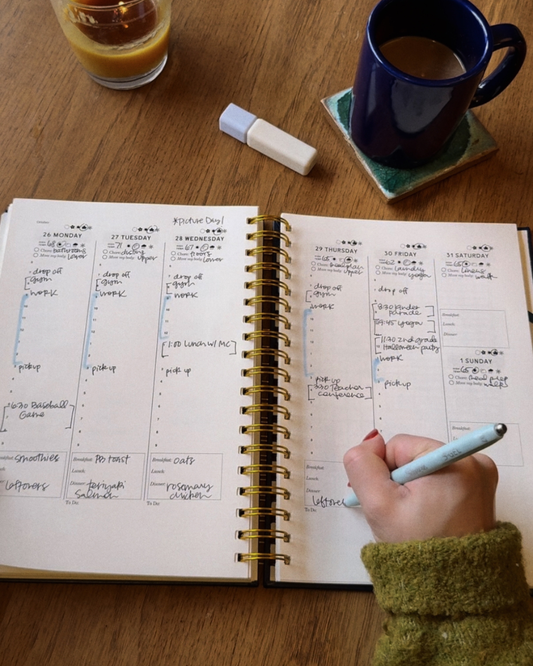 *Picture Day!
26 MONDAY
68
Clean: bathrooms
Move my body: lower
drop off
gym
WORK
pickup
6:30 Baseball
Game
Breakfast: smoothies
leftovers
27 TUESDAY
71
Clean: dusting
Move my body: upper
drop off
gym
WORK
pick up
Breakfast: PB toast
Lunch:
Dinner: teriyaki
salmon
28 WEDNESDAY
67
Clean: floors
Move my body: lower
drop off
gym
WORK
1:00 lunch w/ MC
pick up
Breakfast: oats
Lunch:
Dinner: rosemary
chicken
To Do:
29 THURSDAY
Clean:
Move my body: upper
drop off
gym
WORK
pick up
3:30 Teacher
conference
Breakfast:
Lunch:
Dinner:
leftovers
To Do:
30 FRIDAY
62
Clean: laundry
Move my body:
drop off
8:30 kinder
parade
9:45 yoga
11:30 2nd grade
Halloween party
WORK
pickup
31 SATURDAY
Clean: linens
Move my body: walk
Breakfast:
Lunch:
Dinner:
1 SUNDAY
65
Clean: meal prep
Move my body: walk
Breakfast: